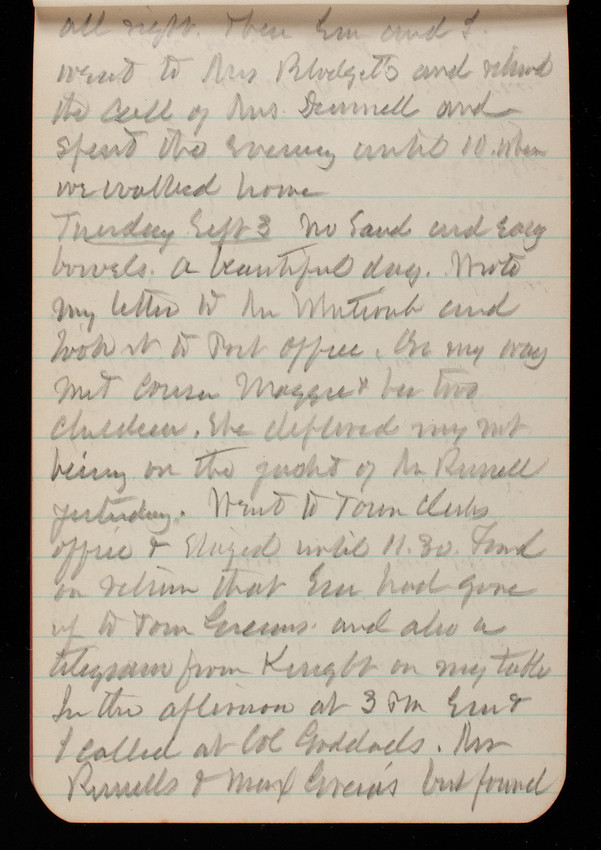 all right. Then Em and I.
went to Mrs Blodgetts and returned
the call of Mrs. Dunnell and
spent the evening until 10. when
we walked home
Tuesday Sept 3 No Sand and easy
bowels. A beautiful day. Wrote
my letter to Mr and
took it to Post Office. On my way
met Cousin Maggie & her two
children. She deplored my not
being on the yacht of Mr Russell
yesterday. Went to Town Clerks
office & stayed until 11.30. Found
on return that Em had gone
up to Tom Greens. and also a
telegram from Knight on my table
In the afternoon at 3 PM Em &
I called at Col Goddards. Mrs
Russells & Max but found